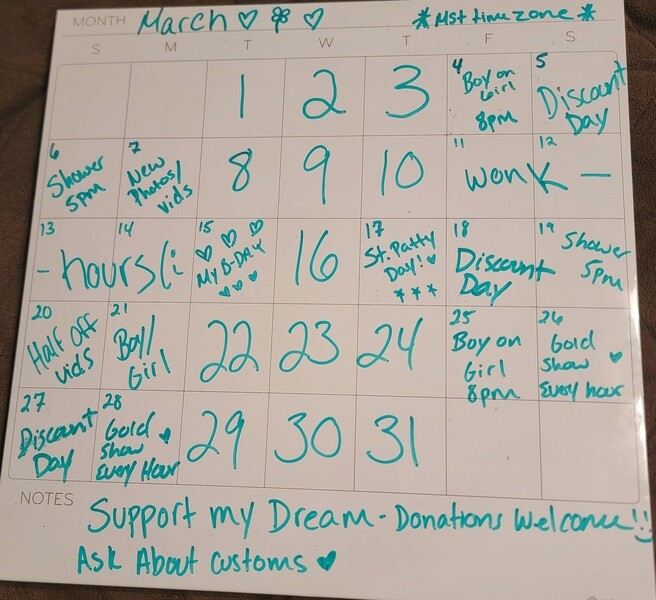 MONTH March ♡ ♡ *Mst timezone*
S M T W T F S
1 2 3
4 Boy on Girl 8pm
5 Discount Day
6 Shower 5pm
7 New Photos/ vids
8 9 10
11 12 wonk -
13 14 - hours (:
15 ♡ ♡ ♡ MY B-DAY ♡ ♡ ♡
16
17 St. Patty Day! ♡ * * *
18 Discount Day
19 Shower 5pm
20 Half Off vids
21 Boy/ Girl
22 23 24
25 Boy on Girl 8pm
26 Gold Show ♥ Every hour
27 Discount Day
28 Gold Show ♥ Every Hour
29 30 31
NOTES
Support my Dream - Donations Welcome!! :)
Ask About customs ♥